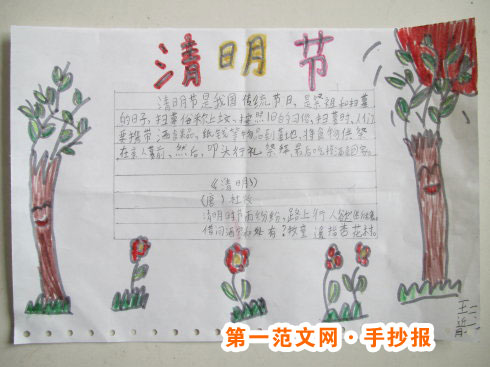 清明节
清明节是我国传统节日,是祭祖和扫墓
的日子。扫墓俗称上坟。按照旧的习俗,扫墓时,人们
要携带酒食果品、纸钱等物品到墓地,将食物供祭
在亲人墓前,然后,叩头行礼祭拜,最后吃掉酒食回家。
《清明》
(唐)杜牧
清明时节雨纷纷,路上行人
借问酒家何处有?牧童遥指杏花村。
第一范文网·手抄报